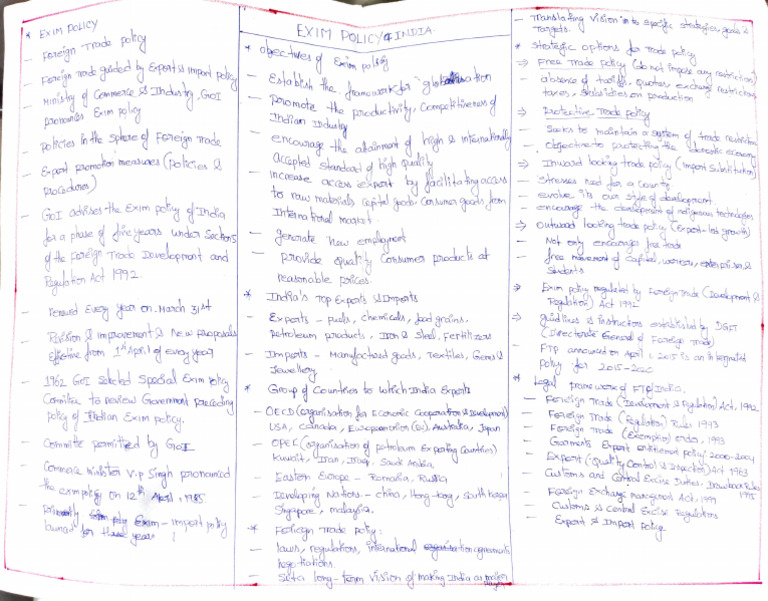 * EXIM POLICY
- Foreign Trade policy
- Foreign Trade guided by Export & import policy
- Ministry of Commerce & Industry, GOI
Exim policy
- policies in the sphere of Foreign Trade
- Export promotion measures (policies &
procedures)
- GoI advises the Exim policy of India
for a phase of five years under Section 5
of the Foreign Trade Development and
Regulation Act 1992.
- renewed Every year on March 31st
- Revision & improvement & New proposals
effective from 1st April of every year
- 1962 GoI selected Special Exim Policy
Committee to review Government preceding
policy of Indian Exim policy.
- Committe permitted by GoI
- Commerce minister V.P Singh pronounced
the exim policy on 12th April, 1985
- import policy
for three years
EXIM POLICY & INDIA.
* Objectives of Exim policy
- Establish the framework for globalisation
- promote the productivity, Competitiveness of
Indian Industry
- encourage the attainment of high & internationally
accepted standard of high quality
- increase access export by facilitating access
to raw materials capital goods. Consumer goods from
International market
- generate new employment
- provide quality consumer products at
reasonable prices.
* India's Top Exports & Imports
- Exports - fuels, chemicals, food grains,
petroleum products, Iron & Steel, Fertilizers
- Imports - Manufactured goods, Textiles, Gems &
Jewellery
* Group of Countries to which India Exports
- OECD (Organisation for Economic Cooperation & Development)
USA, Canada, European Union (EU), Australia, Japan
- OPEC (organisation of petroleum Exporting Countries)
Kuwait, Iran, Iraq, Saudi Arabia
- Eastern Europe - Romania, Russia
- Developing Nations - China, Hong-kong, South korea
Singapore, malaysia.
* Foreign Trade policy:
- laws, regulations, international agreements
negotiations.
- Sets a long-term vision of making India as major
- Translating vision into specific strategies, goals &
Targets.
* Strategic options for Trade policy
⇒ Free Trade Policy (do not impose any restrictions)
- absence of tariffs, quotas exchange restrictions
taxes & subsidies on production
⇒ Protective Trade policy
- Seeks to maintain a system of trade restrictions
- Objective to protecting the domestic economy
⇒ Inward looking trade policy (Import Substitution)
- Stresses need for a country
- evolve its own style of development
- encourage the development of indigenous technologies
⇒ Outward looking trade policy (Export-led growth)
- Not only encourage free trade
- free movement of Capital, workers, enterprises &
Students
⇒ Exim policy regulated by Foreign Trade (Development &
Regulation) Act 1992
⇒ guidlines & instructions established by DGFT
(Directorate General of Foreign Trade)
- FTP announced on April 1, 2015 is an integrated
Policy for 2015-2020
* Legal framework of FT of India.
- Foreign Trade (Development & Regulation) Act, 1992
- Foreign Trade (Regulation) Rules 1993
- Foreign Trade (Exemption) Order, 1993
- Garments Export entitlement policy 2000-2004
- Export (Quality Control & Inspection) Act 1963
- Customs and Central Excise Duties Drawback Rules
1995
- Foreign Exchange management Act, 1999
- Customs & Central Excise Regulations
- Export & Import Policy